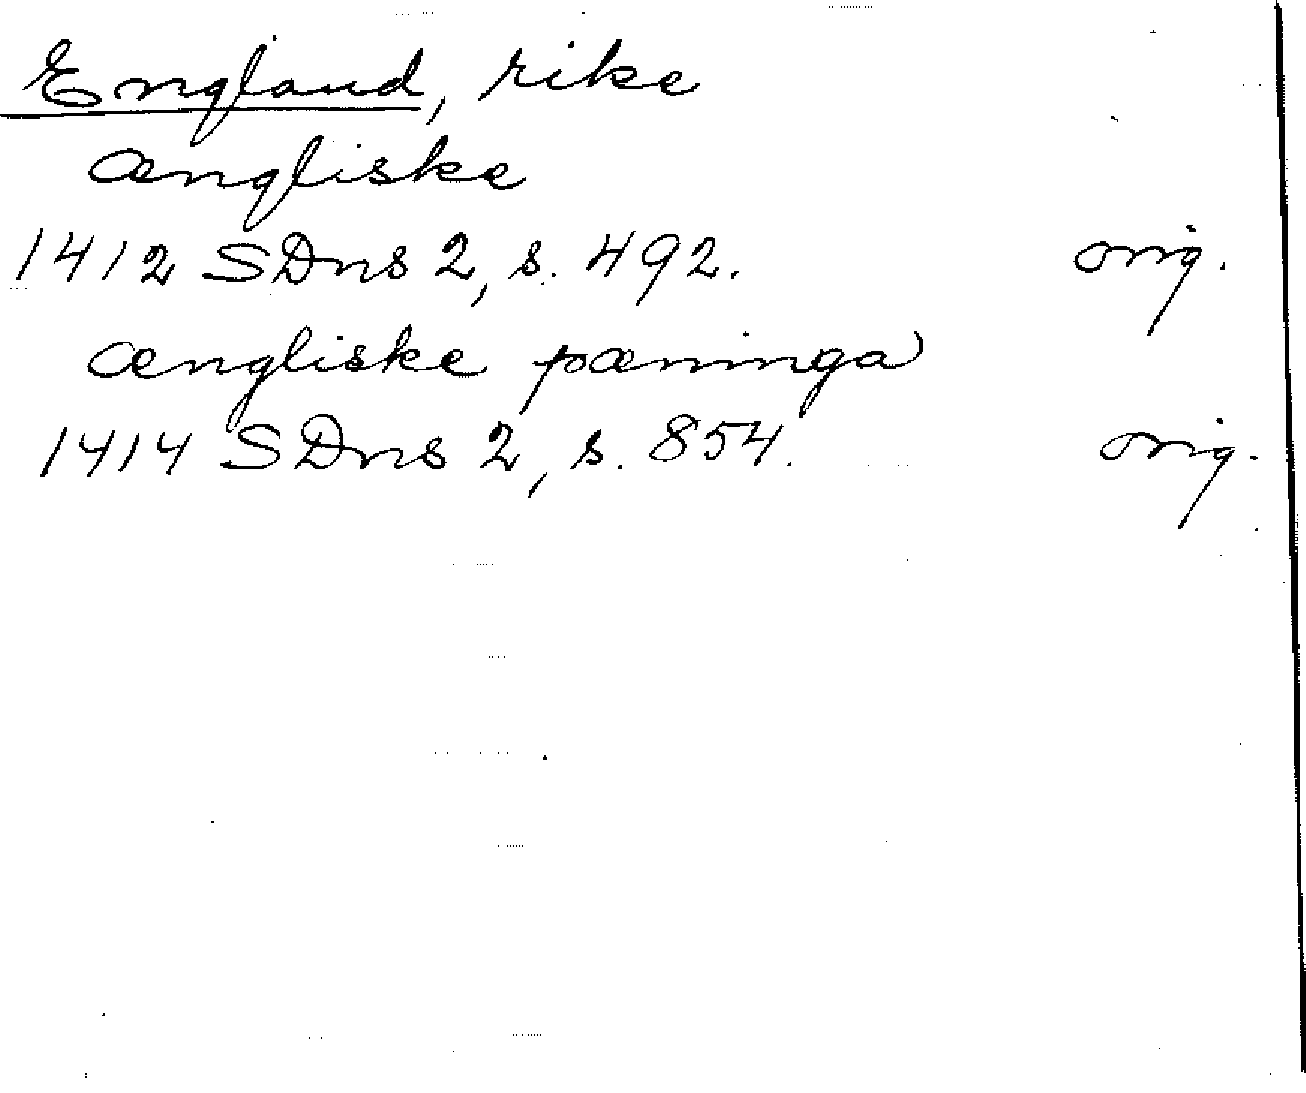 England, rike
ængliske
1412 SDns 2, s. 492. orig.
ængliske pæninga
1414 SDns 2, s. 854. orig.